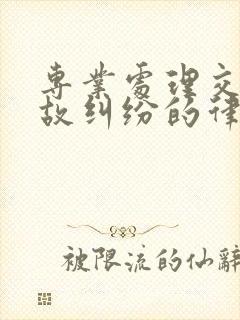 專業處理交
故纠纷的律
被限流的仙辭